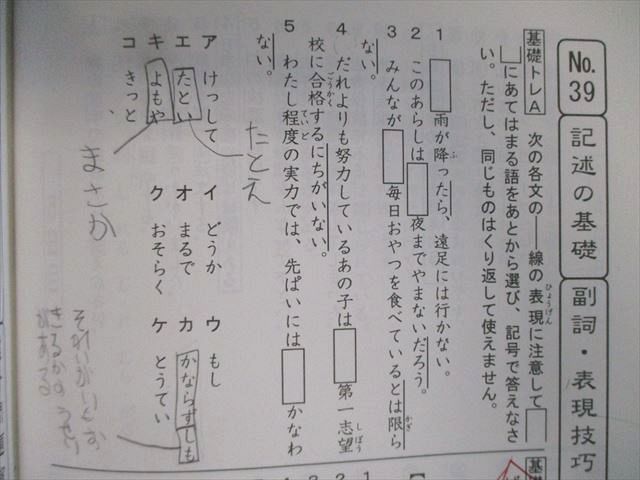 No.39
記述の基礎
副詞・表現技巧
基礎トレA 次の各文の――線の表現に注意して□
□にあてはまる語をあとから選び、記号で答えなさ
い。ただし、同じものはくり返して使えません。
1 □雨が降ったら、遠足には行かない。
2 このあらしは□夜までやまないだろう。
3 みんなが□毎日おやつを食べているとは限ら
ない。
4 だれよりも努力しているあの子は□第一志望
校に合格するにちがいない。
5 わたし程度の実力では、先ぱいには□かなわ
ない。
ア けっして イ どうか ウ もし
エ たとい オ まるで カ かならずしも
キ よもや ク おそらく ケ とうてい
コ きっと
たとえ
まさか
基礎